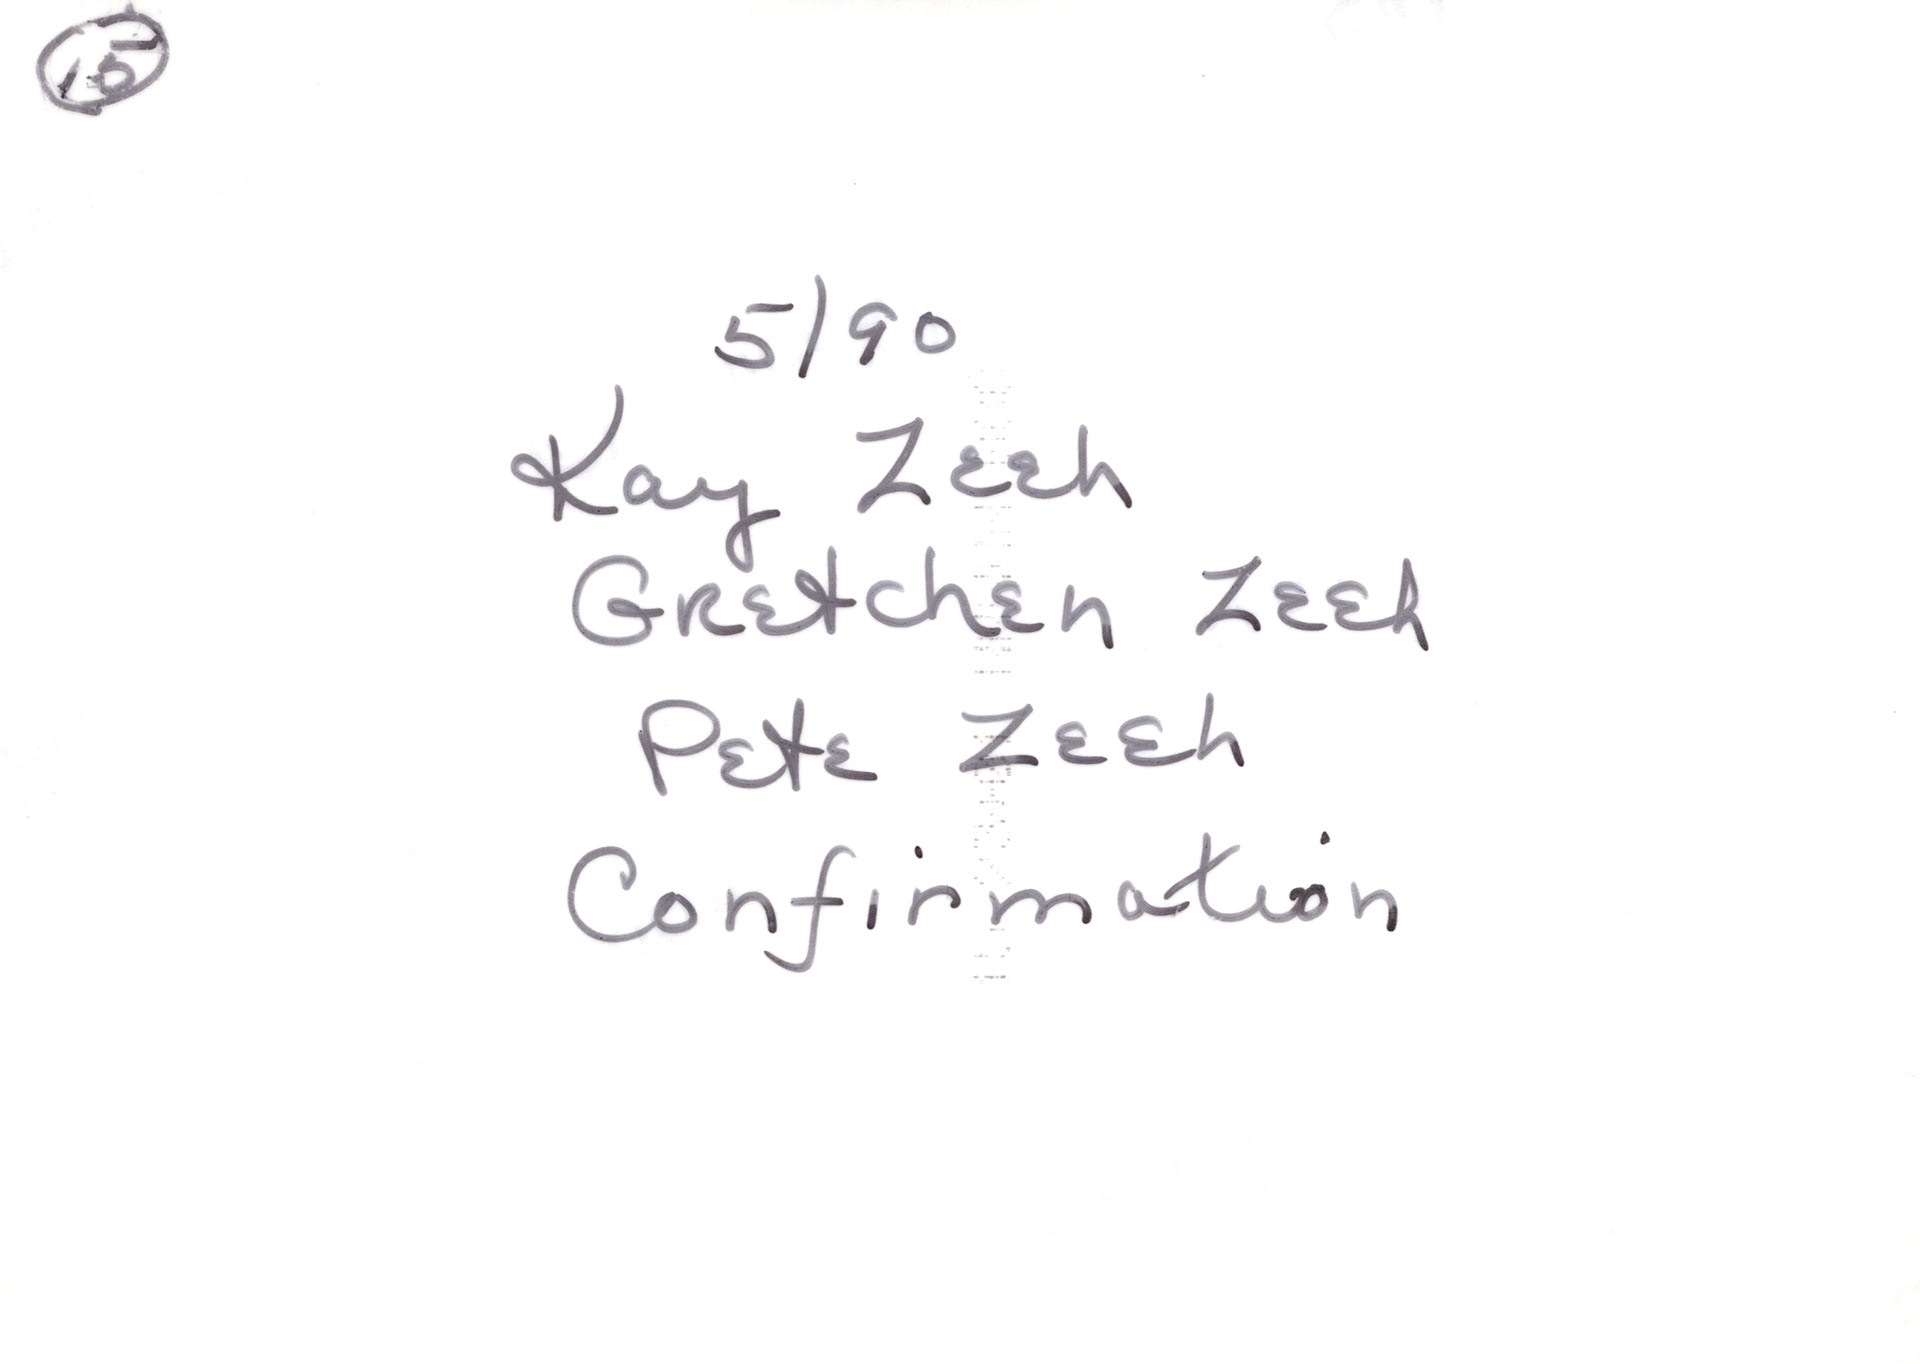 15
5/90
Kay Zeeh
Gretchen Zeeh
Pete Zeeh
Confirmation